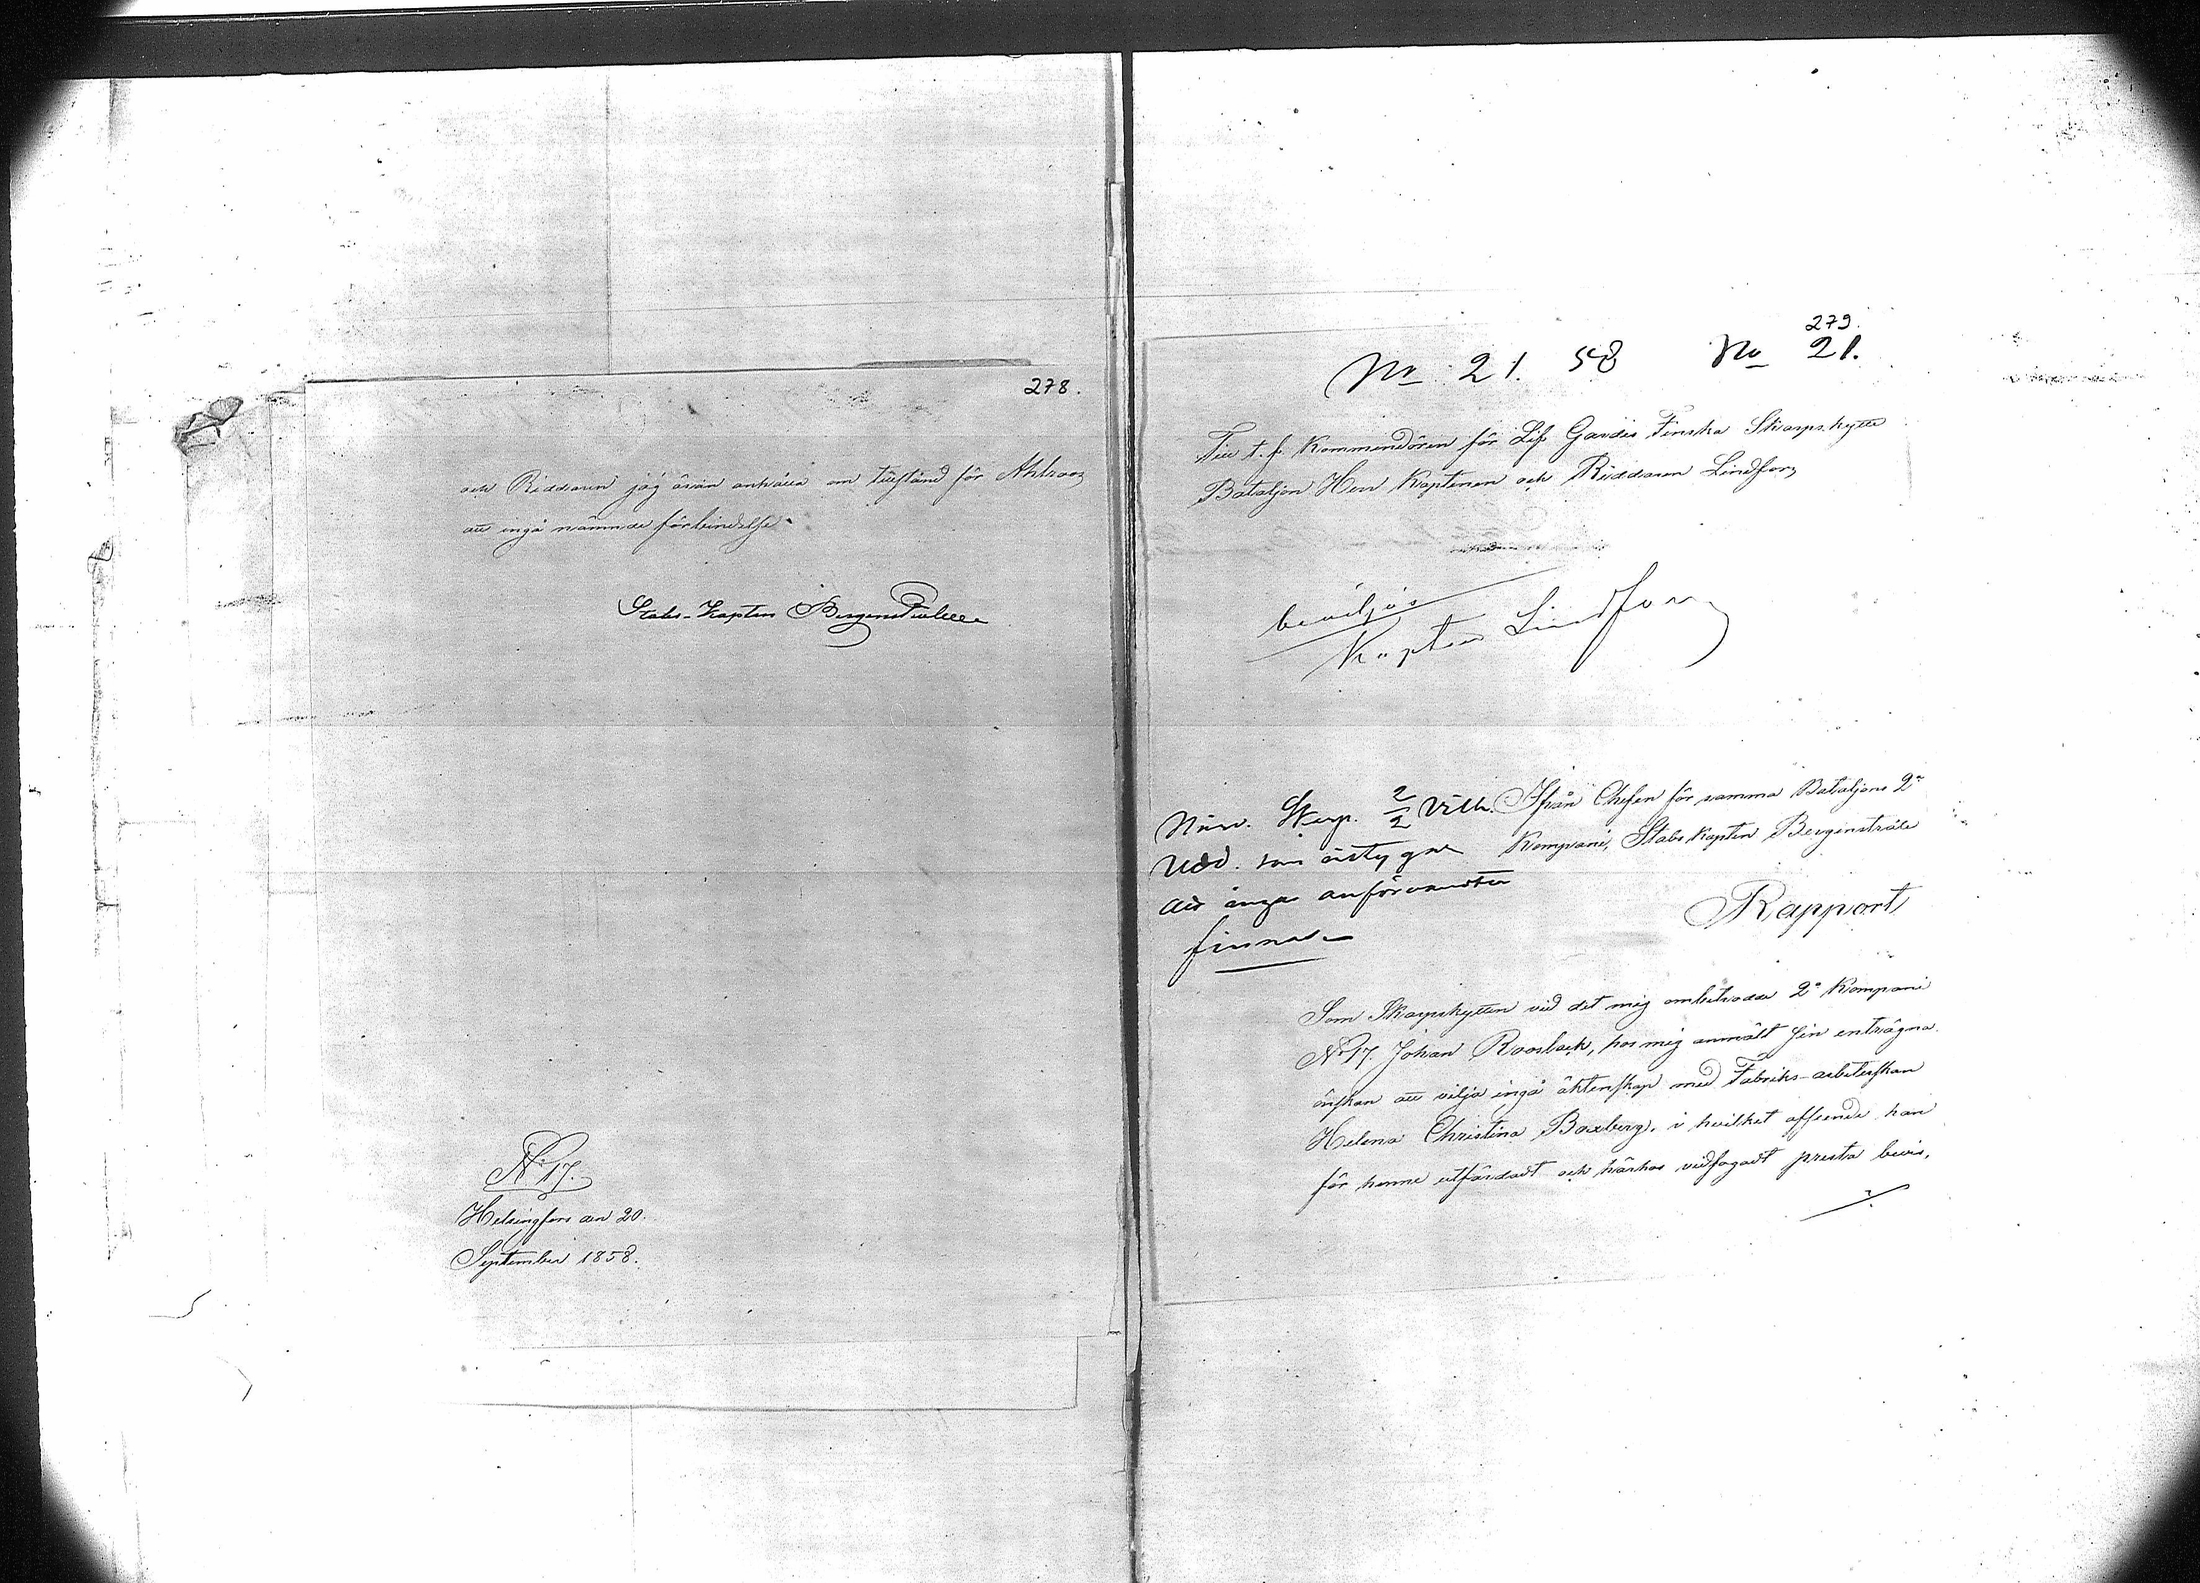 278.
och Riddaren jag äran anhålla om tillstånd för Ahlroos
att ingå nämnde förbindelse.
Stabs-Kapten Bergenstråle
No 17.
Helsingfors den 20.
September 1858.
279.
No 21. 58 No 21.
Till t. f. Kommendören för Lif Gardes Finska Skarpskytte
Bataljon Herr Kaptenen och Riddaren Lindfors
beviljas
Kapten Lindfors
Ifrån Chefen för samma Bataljons 2a
Kompani, Stabs Kapten Bergenstråle
Närv. Skarp. 2/2
Udd. som
att inga anförvandter
finnas
Rapport
Som Skarpskytten vid det mig ombetrodde 2a Kompani
No 17. Johan Roosback, hos mig anmält sin enträgna
önskan att vilja ingå äktenskap med Fabriks-arbeterskan
Helena Christina Boxberg, i hvilket afseende han
för henne utfärdadt och härhos vidfogadt presta bevis,
./.